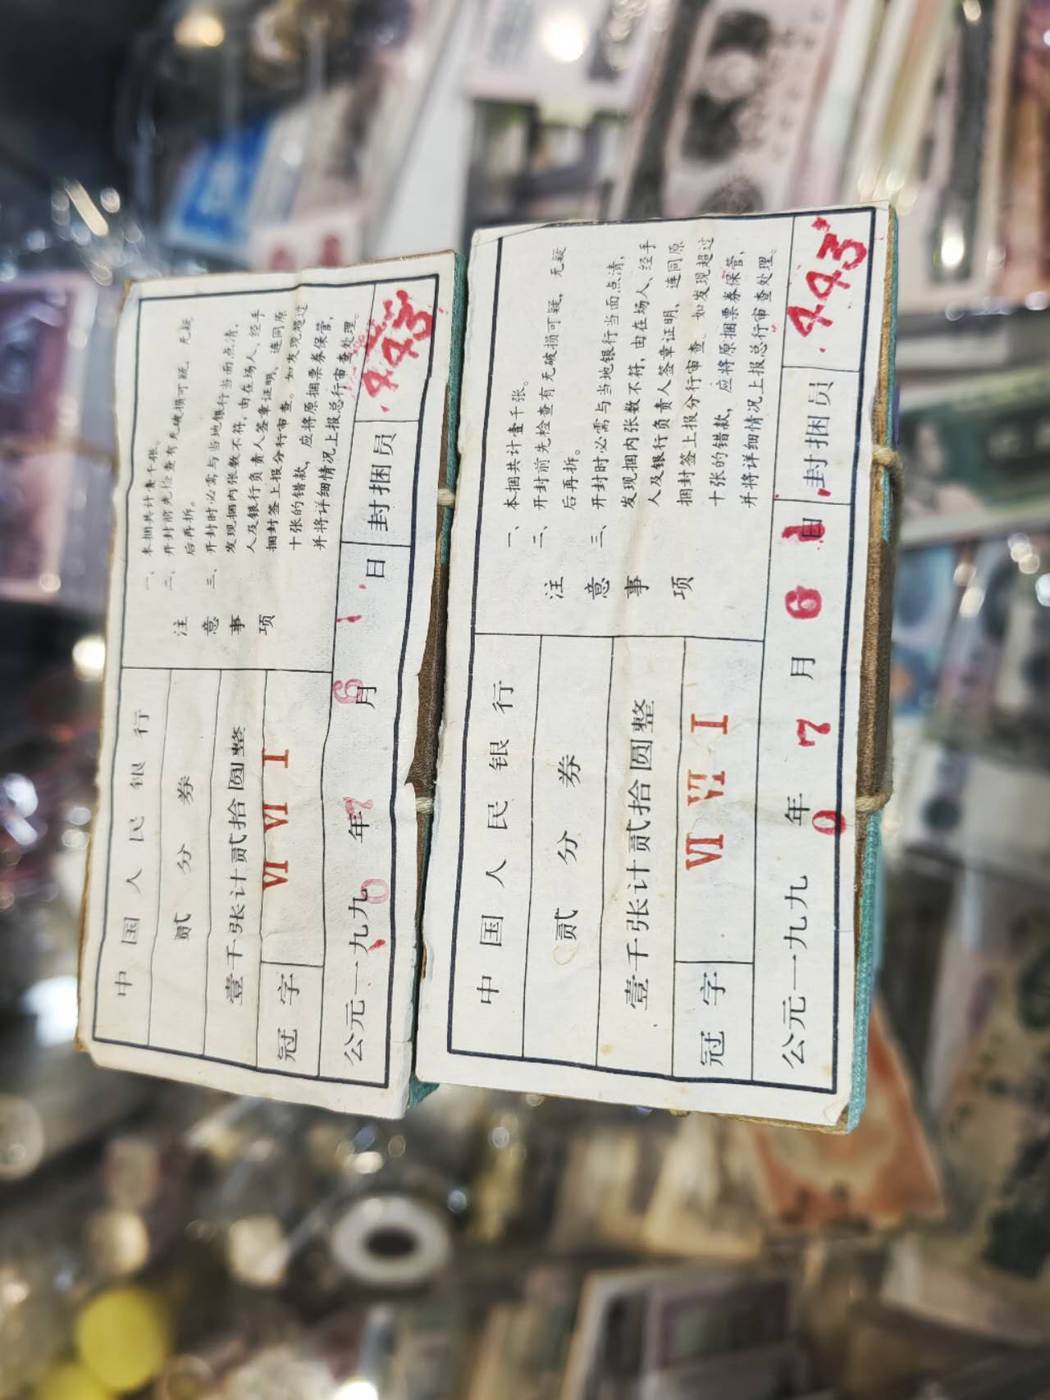 中国人民银行
贰分券
壹千张计贰拾圆整
冠字 VI VI I
公元一九九0年7月61日 封捆员 443
注意事项
一、本捆共计壹千张。
二、开封前先检查有无破损可疑,无疑
后再拆。
三、开封时必需与当地银行当面点清,
发现捆内张数不符,由在场人、经手
人及银行负责人签章证明、连同原
捆封签上报分行审查。如发现超过
十张的错款,应将原捆票券保管,
并将详细情况上报总行审查处理。
中国人民银行
贰分券
壹千张计贰拾圆整
冠字 VI VI I
公元一九九0年7月61日 封捆员 443
注意事项
一、本捆共计壹千张。
二、开封前先检查有无破损可疑,无疑
后再拆。
三、开封时必需与当地银行当面点清,
发现捆内张数不符,由在场人、经手
人及银行负责人签章证明、连同原
捆封签上报分行审查。如发现超过
十张的错款,应将原捆票券保管,
并将详细情况上报总行审查处理。